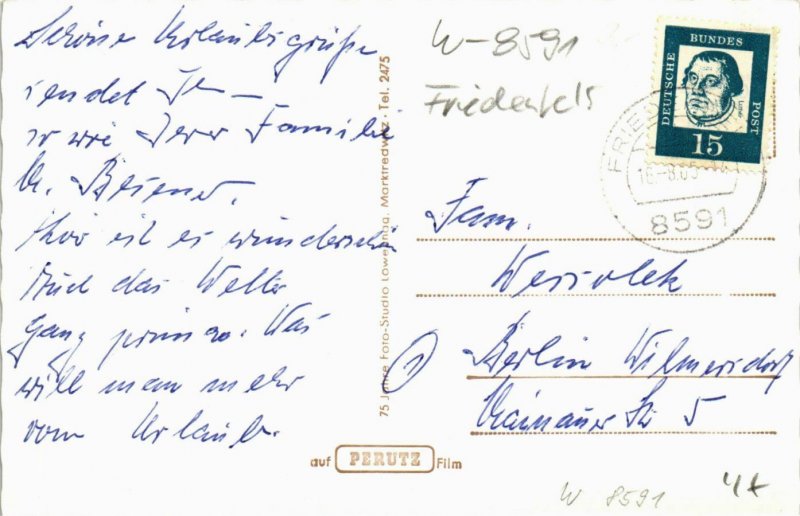 Schöne Urlaubsgrüße
sendet
so wie Ihrer Familie
Hier ist es wunderschön
Auch das Wetter
Ganz prima. Was
will man mehr
vom Urlaub.
75 Jahre Foto-Studio Marktredwitz · Tel. 2475
auf PERUTZ Film
W-8591
Friedenfels
DEUTSCHE BUNDES POST
15
FRIED
8591
Fam.
Wessolek
Berlin Wilmersdorf
Mainauer Str 5
W 8591